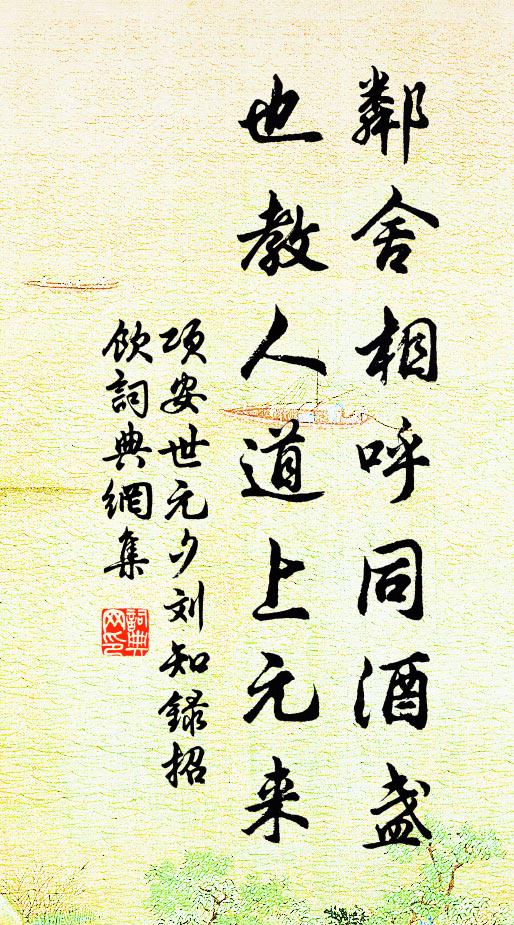 鄰舍相呼同酒盏
也教人道上元来
项安世元夕刘知録招
飲詞典網集
詞典
网印